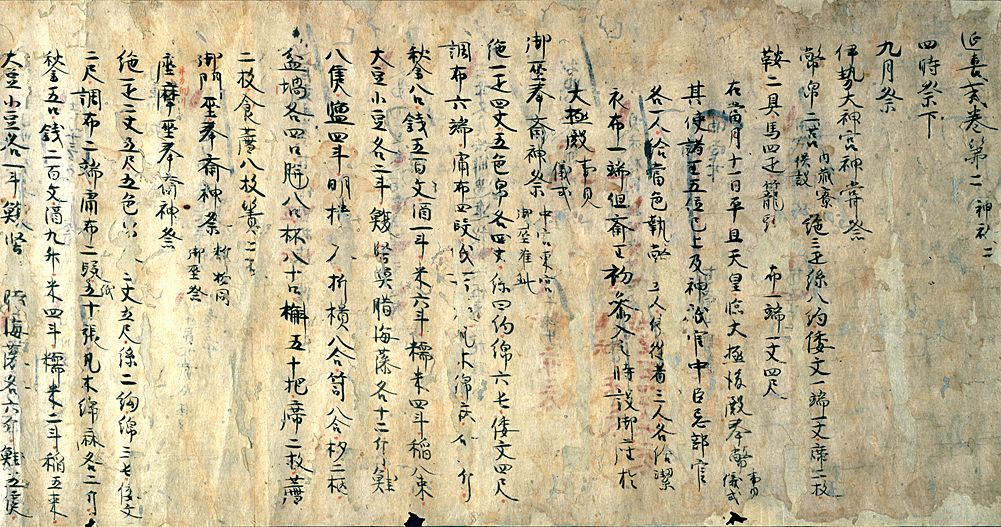 延喜式巻第二 神祇二
四時祭下
九月祭
伊勢大神宮神嘗祭
幣帛二筥 内蔵寮供設 絁三疋絲八約倭文一端一丈席二枚
鞍二具馬四疋籠頭 布一端一丈四尺
右當月十一日平旦天皇臨大極後殿奉幣 事見儀式
其使諸王五位已上及神祇官中臣忌部官
各一人給當色執幣 三人給潔
衣布一端但斎王初参入之時設御座於
大極殿 事見儀式
御巫奉斎神祭 中宮東宮御巫准此
絁一疋四丈五色帛各四丈絲四約綿六七倭文四尺
調布六端庸布四段 凡木綿
秋釜八口銭五百文酒一斗米六斗糯米四斗稲八束
大豆小豆各二斗鰒堅魚腊海藻各十二斤鮭
八隻塩四斗明櫃八折櫃八合筥八合杓二柄
盆堝各四口 八口杯八十口槲五十把席二枚薦
二枚食薦八枚簀二
御門巫奉斎神祭
座摩巫奉斎神祭 御巫祭
絁一疋二丈五尺五色帛 二丈五尺絲二約綿三七倭文
二尺調布二端庸布二段紙五十張凡木綿麻各二斤
秋釜五口銭二百文酒九升米四斗糯米二斗稲五束
大豆小豆各一斗鰒堅 腊海藻各六斤鮭五隻